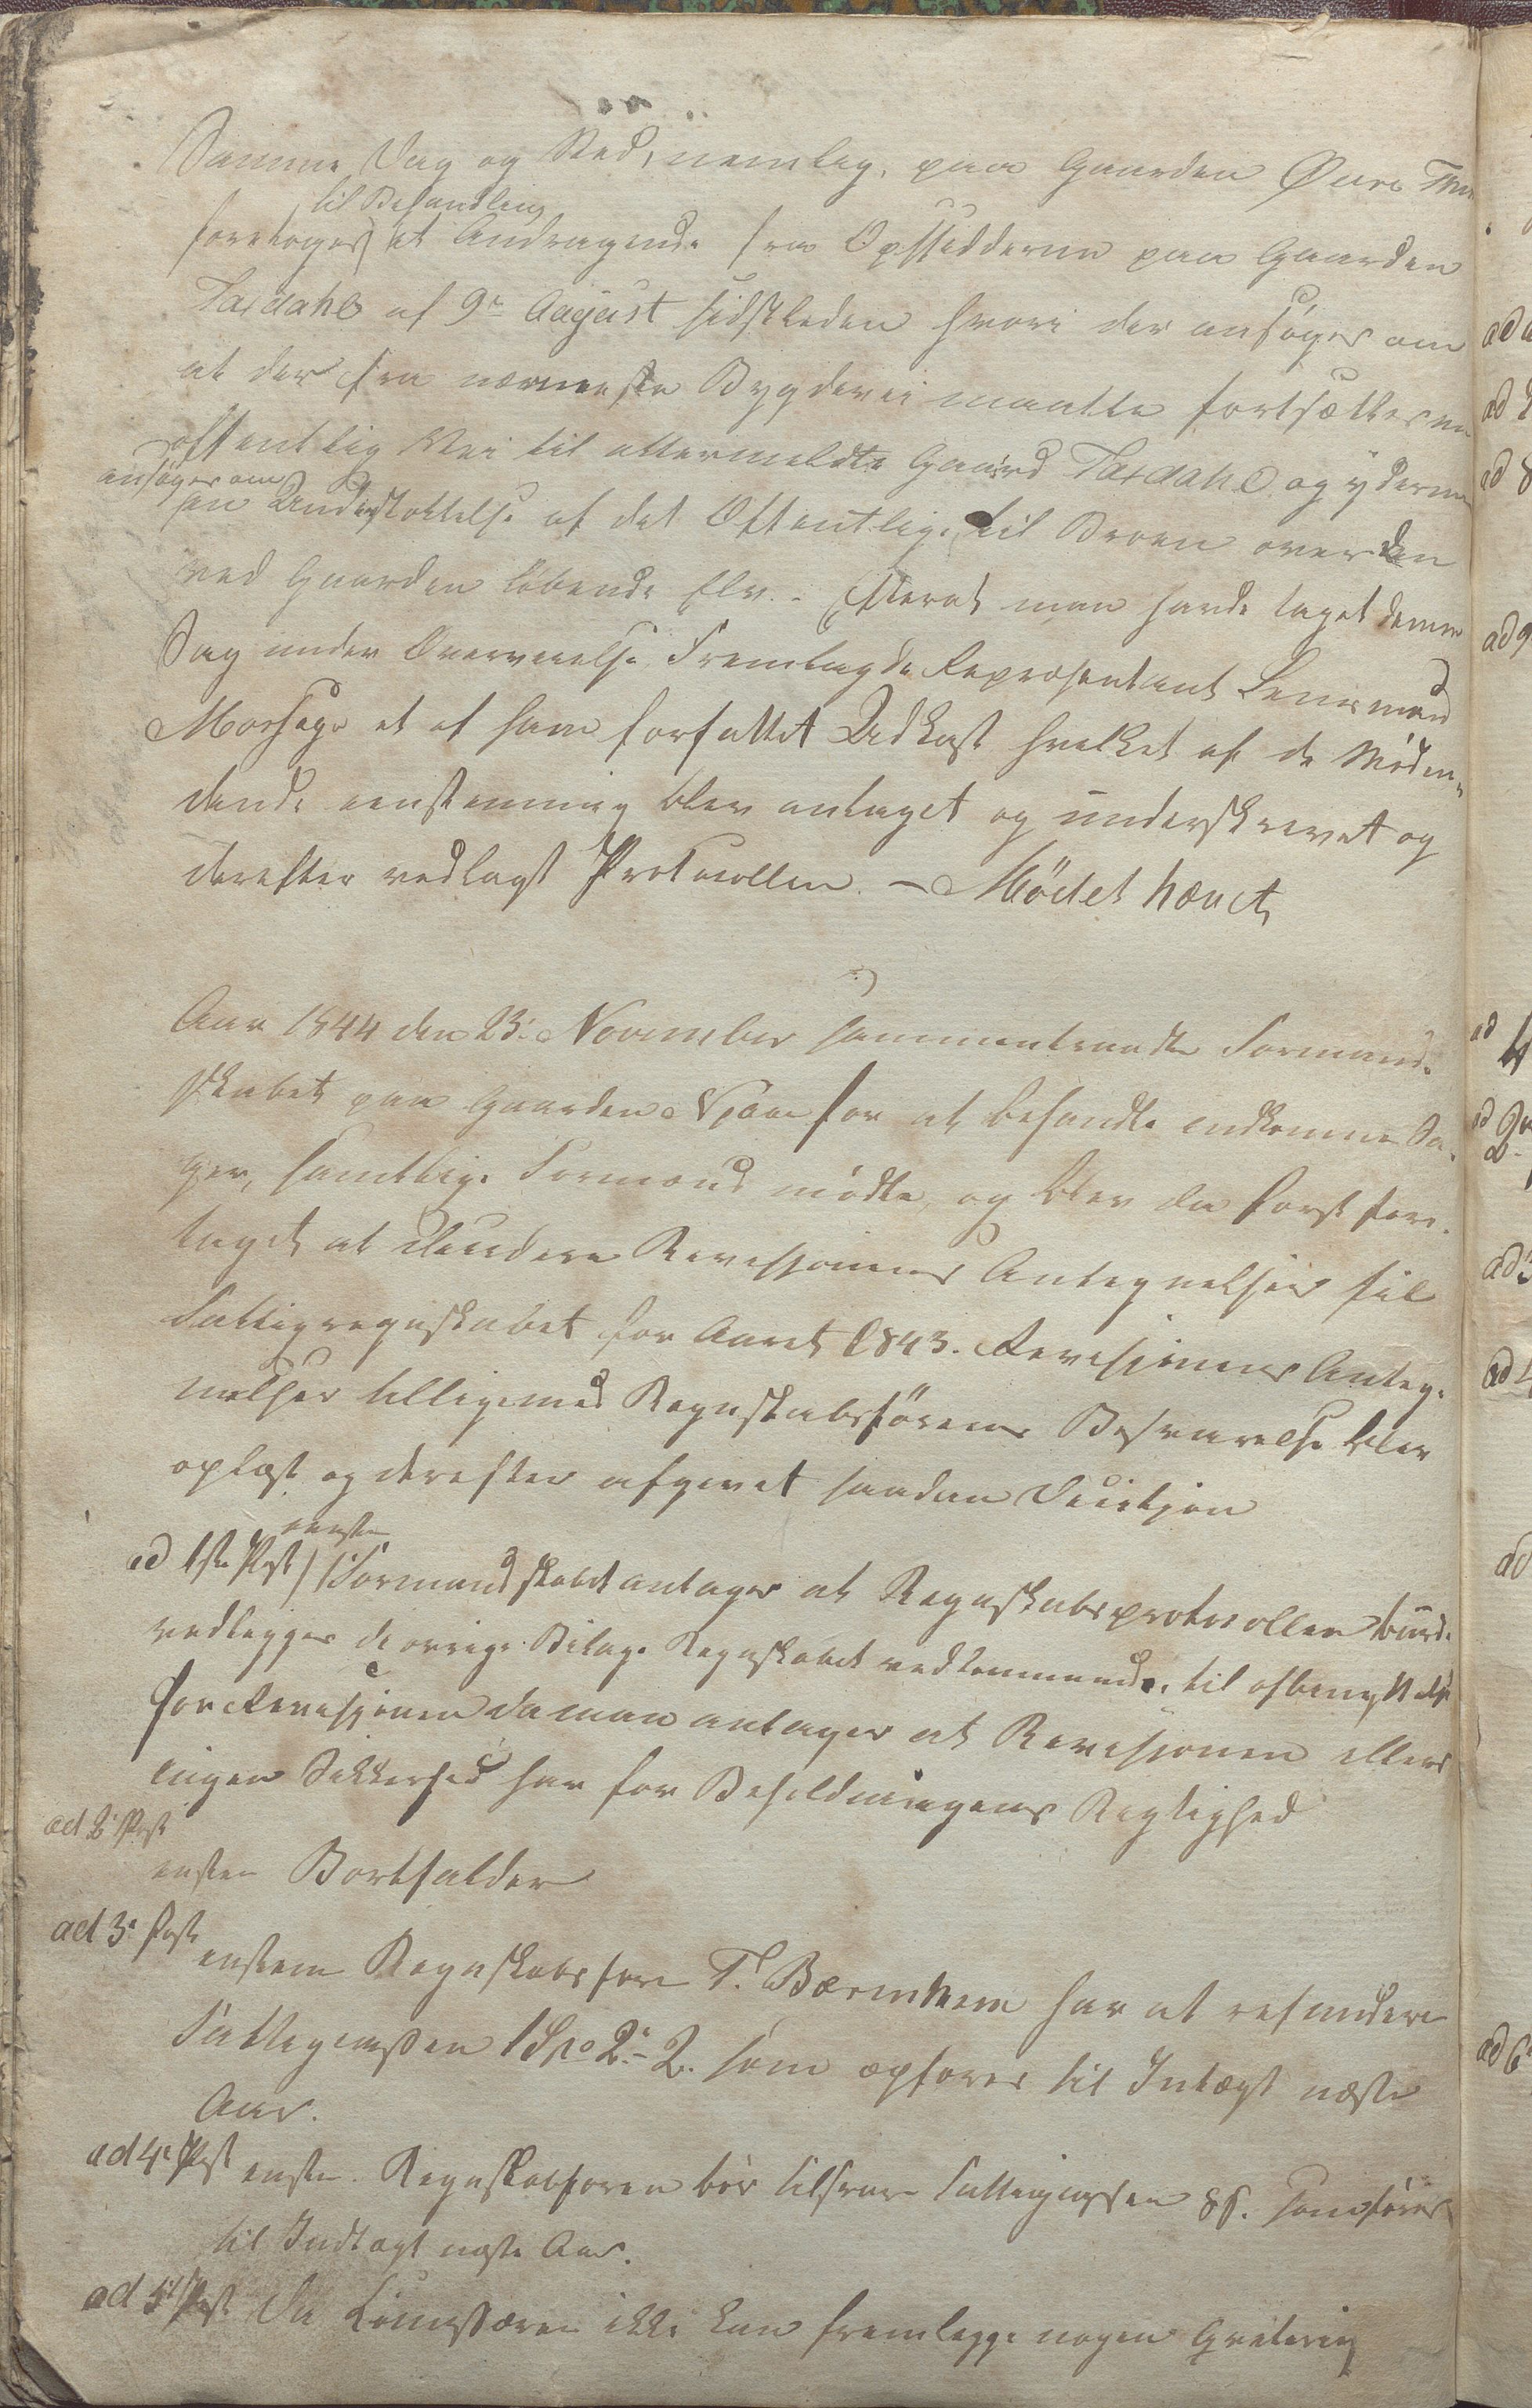 Samme Dag og Sted, nemlig, paa Gaarden Øvre
til Behandling
foretoges et Andragende fra Opsidderne paa Gaarden
Taxdahl af 9de August sidstleden hvori der ansøges om
at der fra nærmeste Bygdevei maatte fortsættes en
offentlig Vei til ommeldte Gaard Taxdahl og yderme
ansøges om
en Understøttelse af det Offentlige til Broen over den
ved Gaarden løbende Elv. - Efterat man havde taget denne
Sag under Overveielse, Fremlagde Repræsentant Lensmand
et af ham forfattet Udkast hvilket af de Møden-
dende eenstemmig blev antaget og underskrevet og
derefter vedlagt Protocollen. - Mødet hævet
Aar 1844 den 23. November sammentraadte Formand-
skabet paa Gaarden for at behandle indkomne Sa-
ger, samtlige Formænd mødte, og blev da først fore-
taget at decidere Revisjonens Antegnelser til
Fattigregnskabet for Aaret 1843. Revisjonens Anteg-
nelser tilligemed Regnskabsførerens Besvarelse blev
oplæst og derefter afgivet saadan Decisjon
ad 1ste Post / eenst.
Formandskabet antager at Regnskabsprotocollen burde
vedlegges de øvrige Bilage Regnskabet vedkommende, til afbenyttelse
for Revisjonen da man antager at Revisjonen ellers
ingen Sikkerhed har for Beholdningens Rigtighed
ad 2 Post
enstem Bortfalder
ad 3e Post
enstem Regnskabsfører T. har at refundere
Fattigcassen 1 Spd 2. - 2. som opføres til Indtægt næste
Aar.
ad 4e Post enste. Regnskabsføreren bør tilsvare Fattigcassen 8 s. som føres
til Indtægt næste Aar.
ad 5te Post Da Lensmanden ikke kan fremlegge nogen Qvitering